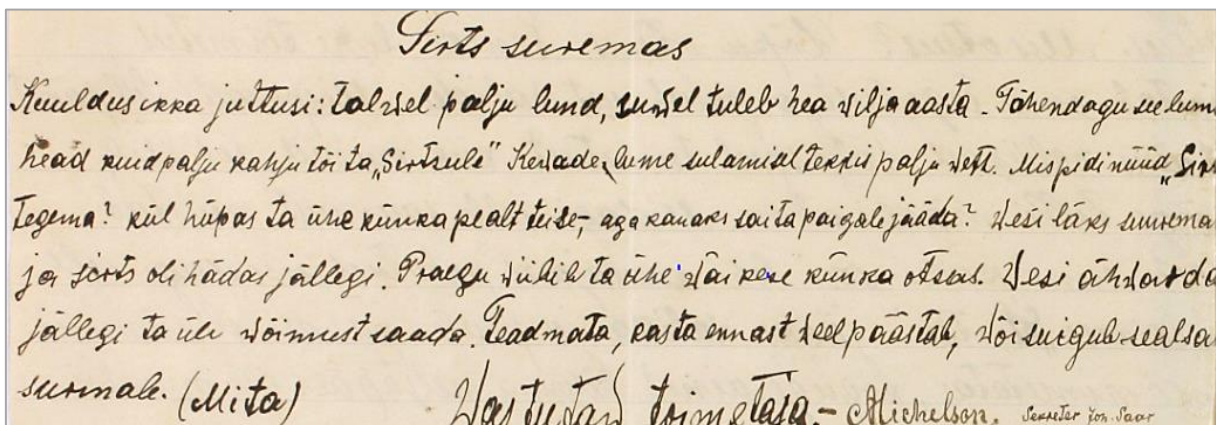 Sirts suremas
Kuuldus ikka juttusi: talwel palju lund, suwel tuleb hea wilja aasta. Tähendagu see lumi
head kuid palju kahju tõi ta „Sirtsule" Kewade, lume sulamisel tekkis palju wett. Mis pidi nüüd „Sirts
tegema? kül hüpas ta ühe künka pealt teise, aga kauaks sai ta paigale jääda? Wesi läks suurema
ja sirts oli hädas jällegi. Praegu wiibib ta ühe wäikese künka otsas. Wesi ähwarda
jällegi ta üle wõimust saada. Teadmata, kas ta ennast weel päästab, wõi suigub sealsa
surmale. (Mita) Wastutaw toimetaja. - Michelson. Sekreter Joh. Saar